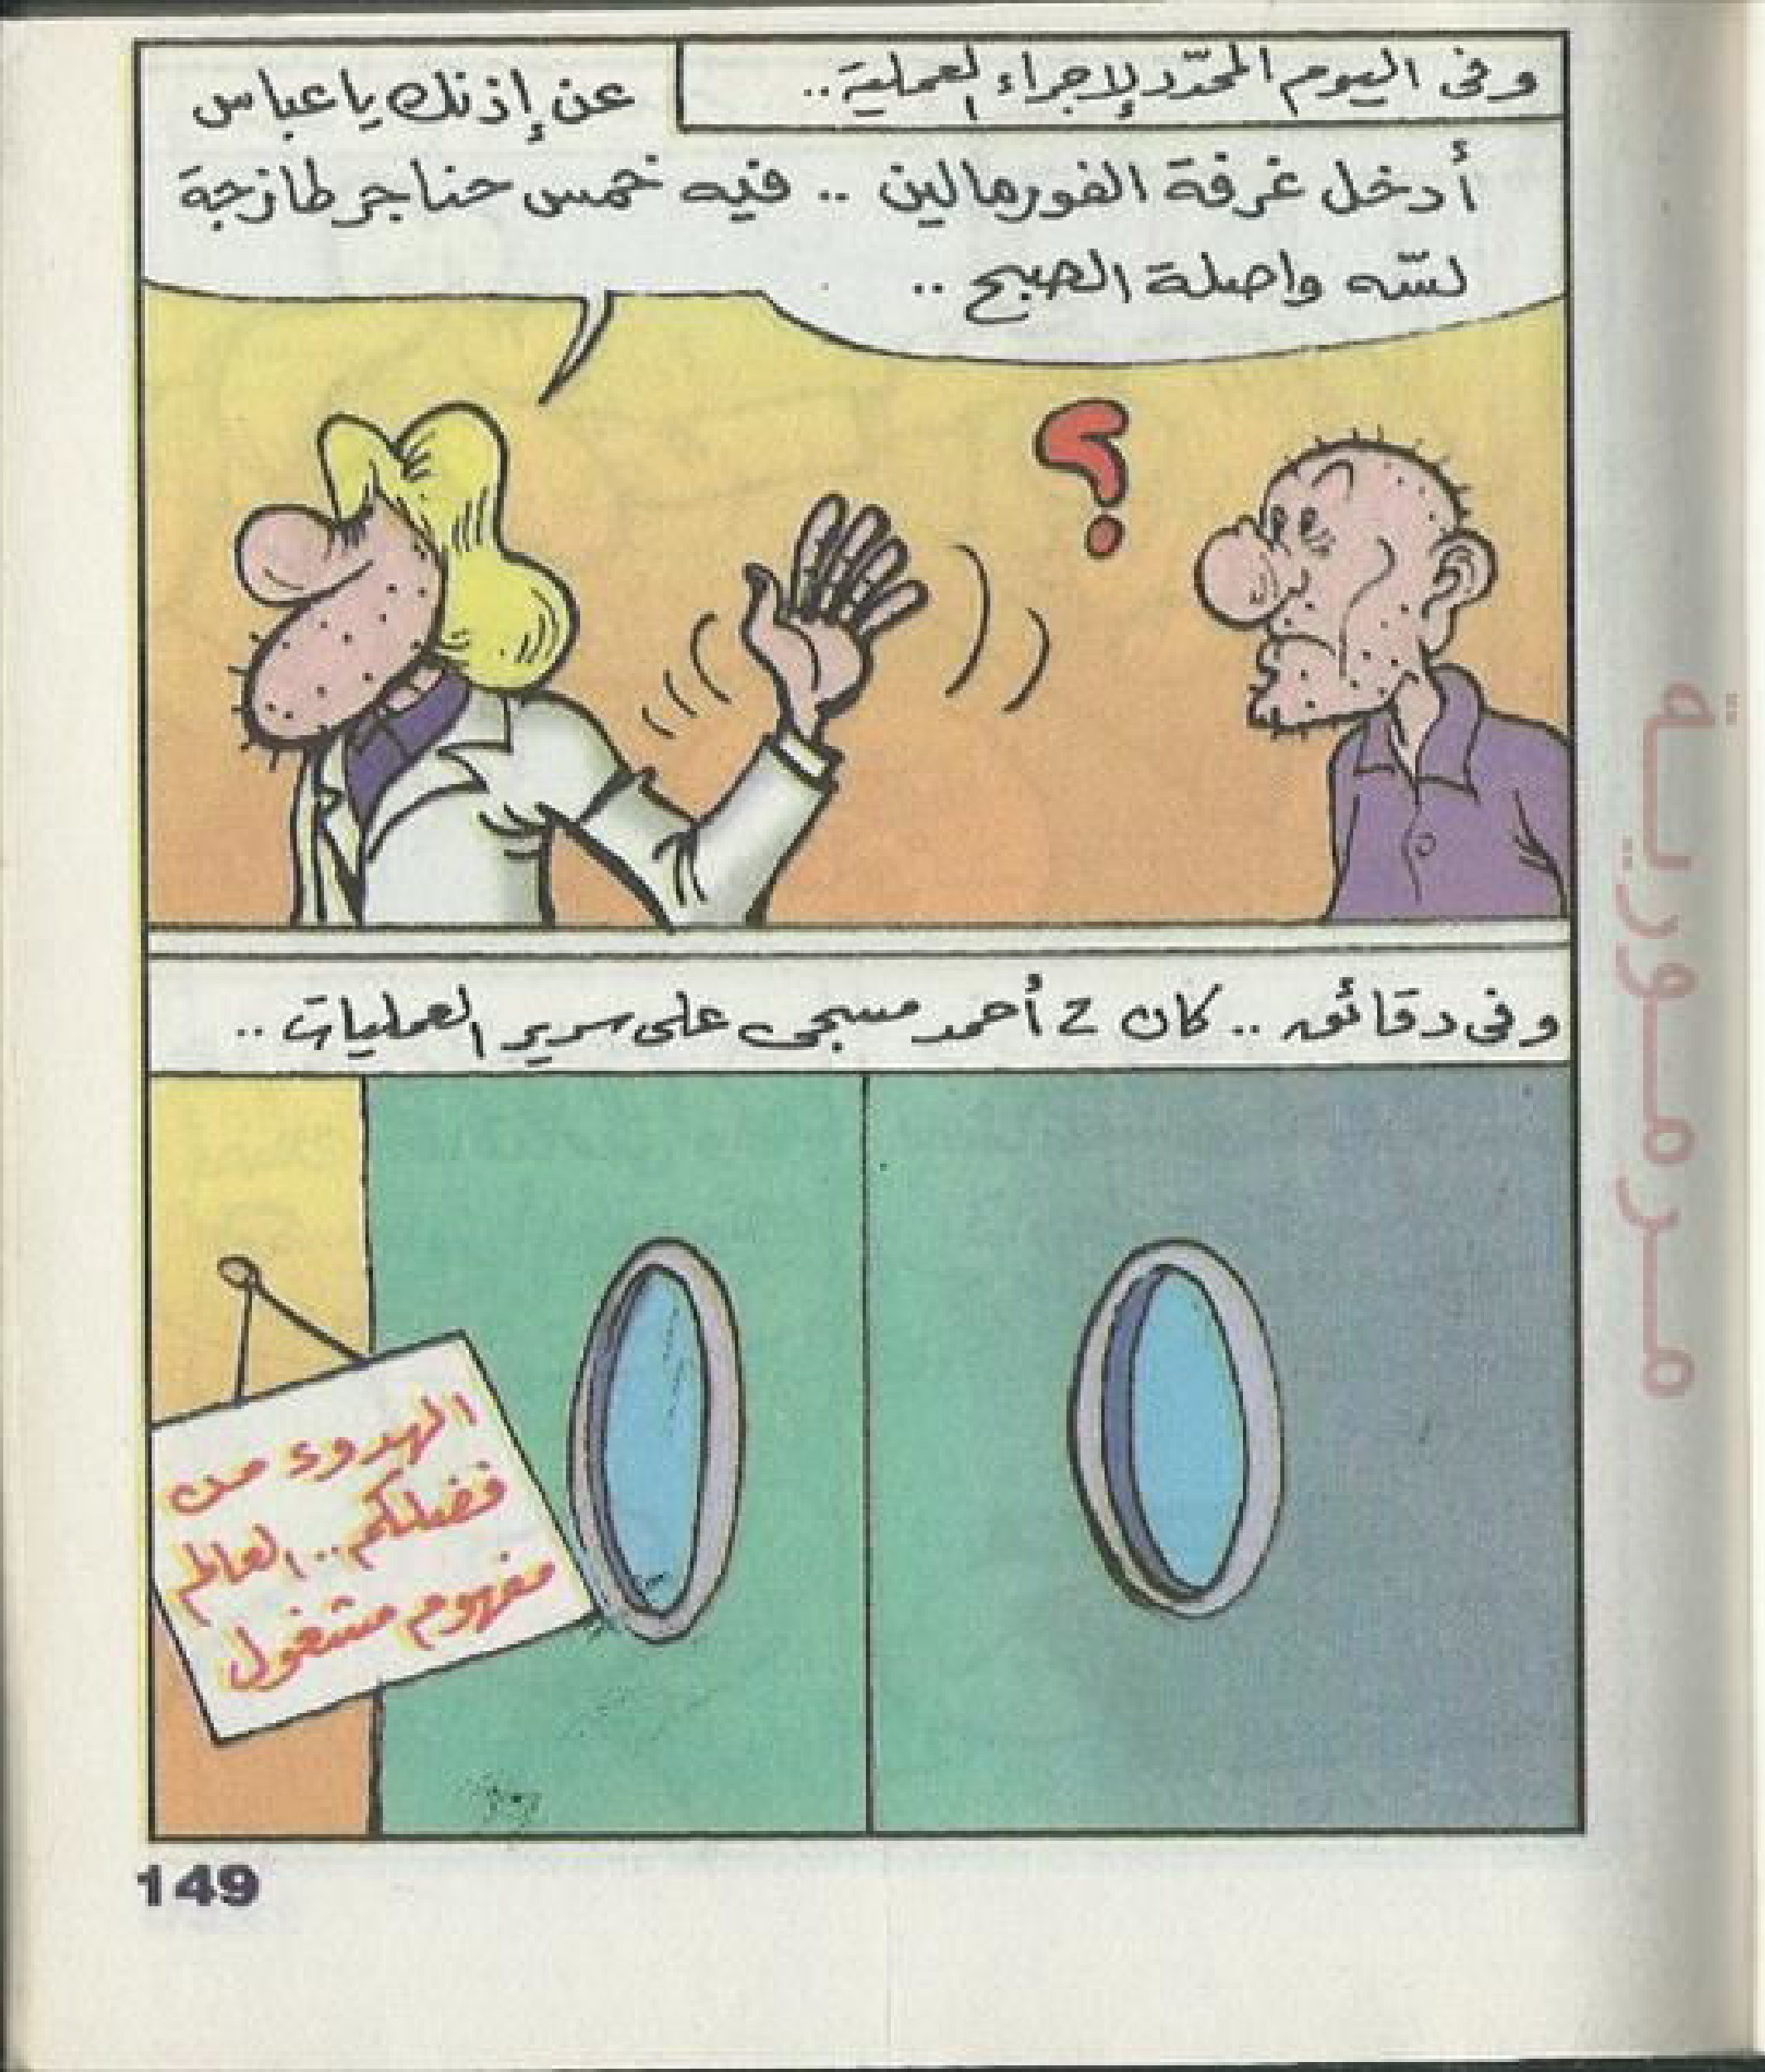 وفى اليوم المحدّد لإجراء العملية..
عن إذنك يا عباس
أدخل غرفة الفورمالين .. فيه خمس حناجر طازجة
لسّه واصلة الصبح ..
؟
وفى دقائق .. كان ع أحمد مسجى على سرير العمليات ..
الهدوء من
فضلكم .. العالم
مفهوم مشغول
149
مرمورية